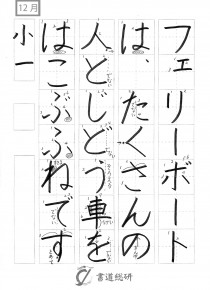 12月
フェリーボート
は、たくさんの
人とじどう車を
はこぶふねです
小一
書道総研